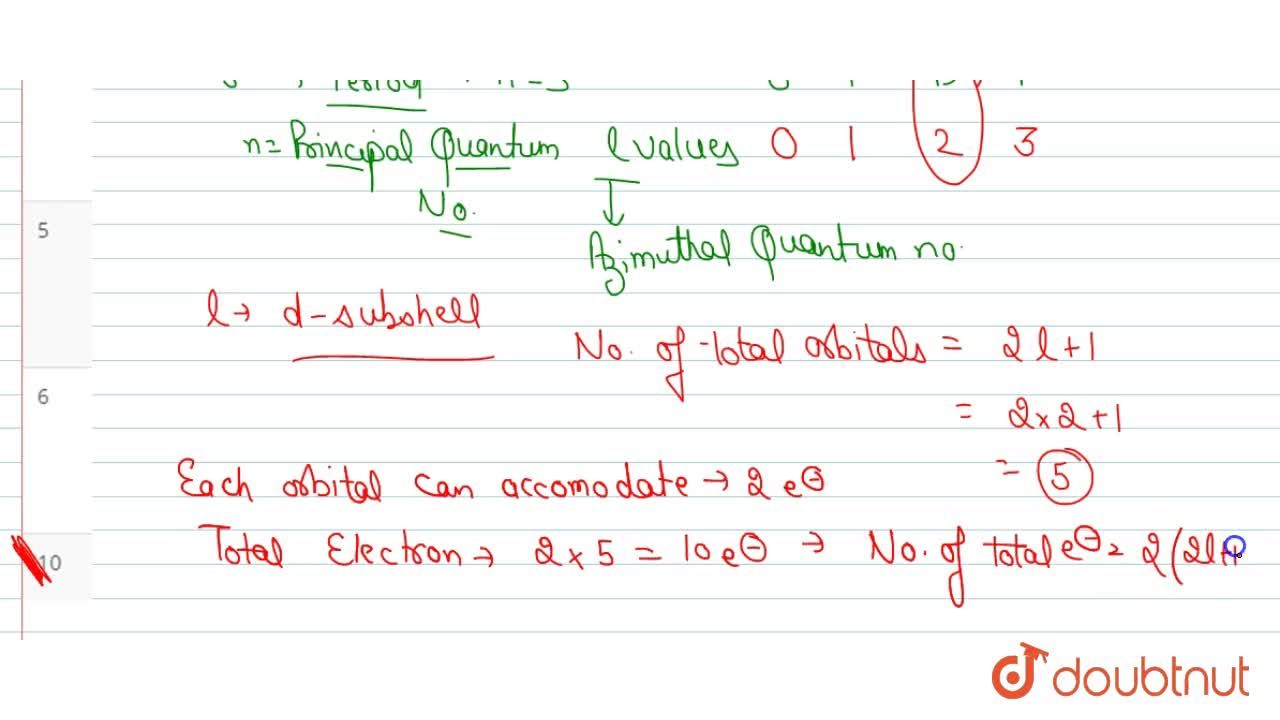 n= Principal Quantum l values 0 1 2 3
No.
5
Azimuthal Quantum no.
l → d-subshell
No. of total orbitals = 2l+1
6
= 2×2+1
Each orbital can accomodate → 2 e⊖
= 5
10 Total Electron → 2×5 = 10e⊖ → No. of total e⊖ = 2(2l+1
doubtnut